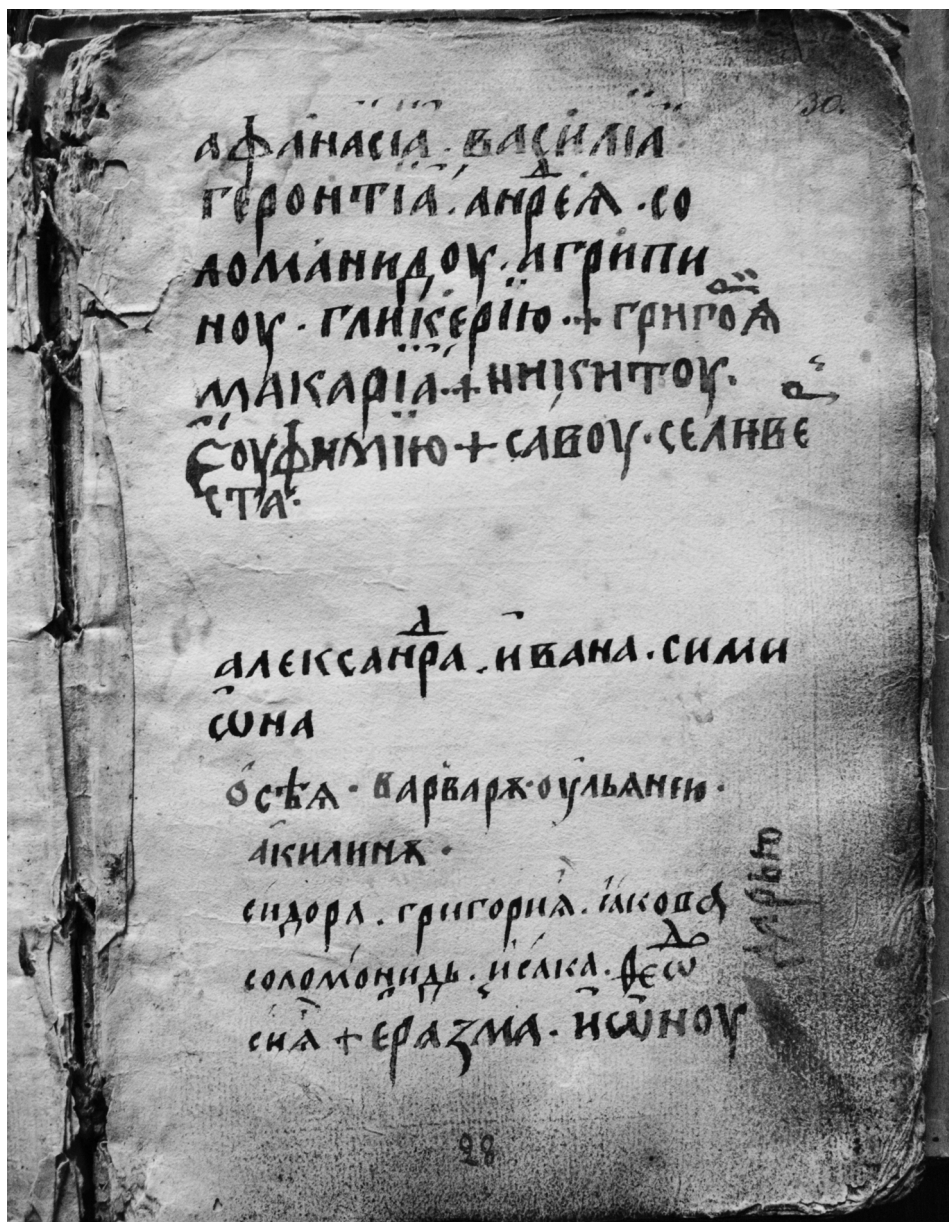 30.
афанасїа . василїа
геронтїа . анⷣреꙗ . со
ломанидоу . агрипи
ноу . гликерїю + григоⷬꙗ
макарїа + никитоу .
еоуфимїю + савоу . селивеⷬ
ста .
алексанⷣра . ивана . сими
ѡна
осѣꙗ · варварѫ · оульянеи ·
акилинѫ ·
сидора . григориꙗ . ꙗкова
соломонидь . исака . феѡⷣ
сиꙗ + еразма . иѡноу
28